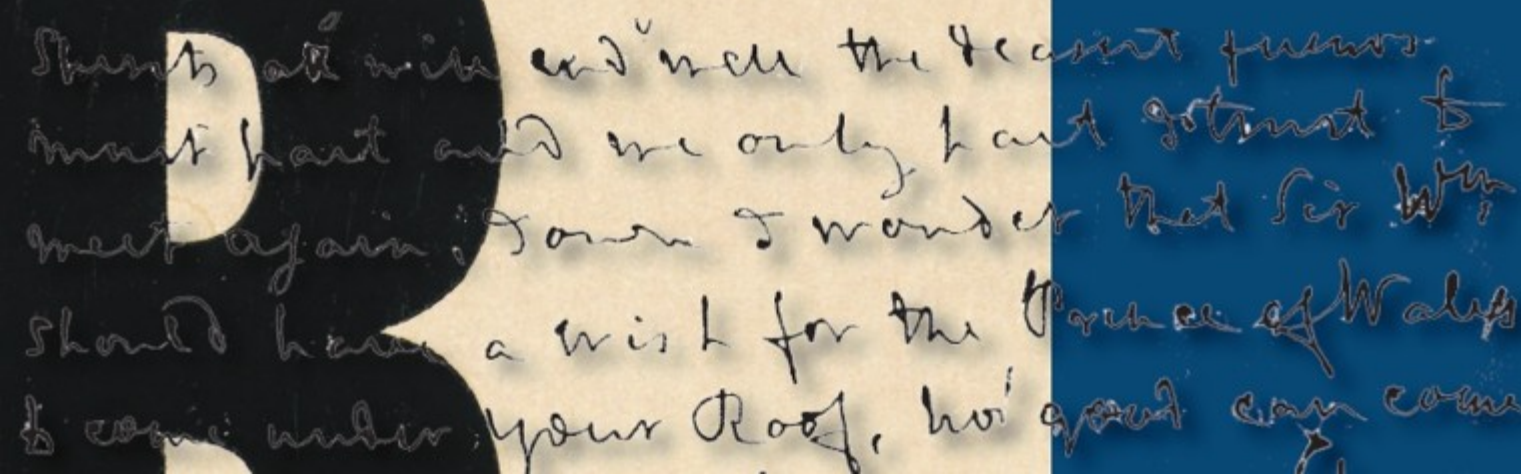 B
Spirits all will and well the dearest friends
must part and we only part to trust to
meet again: I own I wonder that Sir Wm
should have a wish for the Prince of Wales
to come under your Roof, no good can come